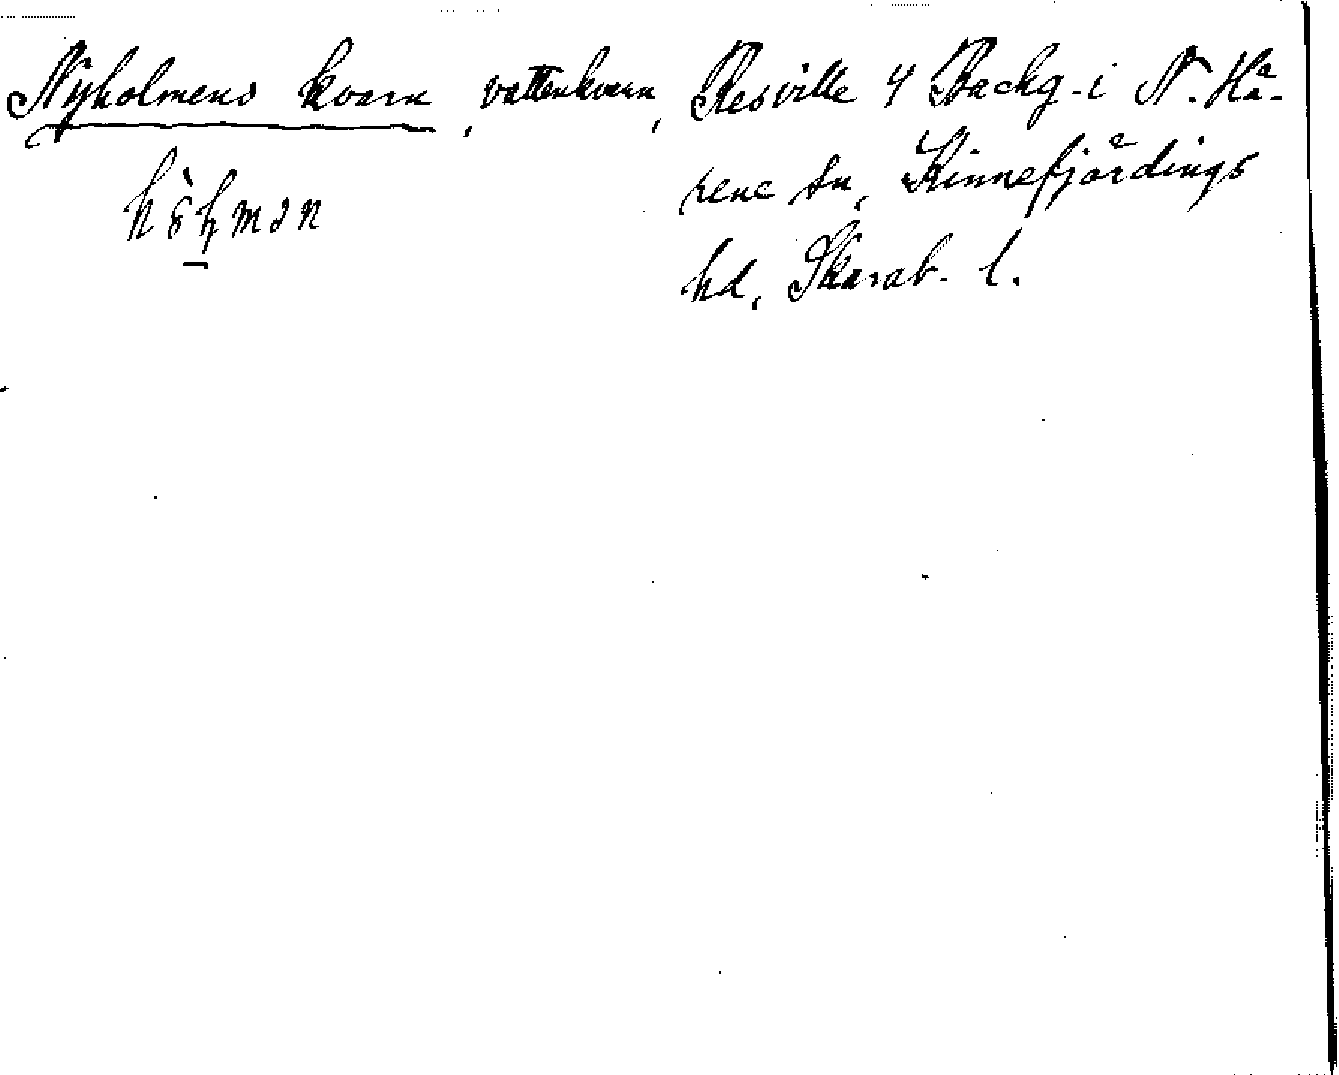 Nyholmens kvarn, vattenkvarn, Resville 4 Backg. i N. Hä-
rene sn, Kinnefjärdings
hd, Skarab. l.